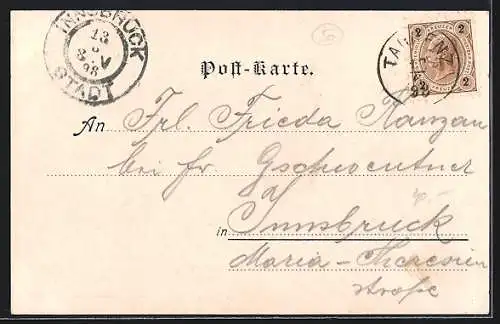 INNSBRUCK
13
8
98
STADT
2 KREUZER 2
Post-Karte.
An Frl. Frieda Ranzau
bei Fr. Gschwentner
4.-
in Innsbruck
Maria-Theresien
straße